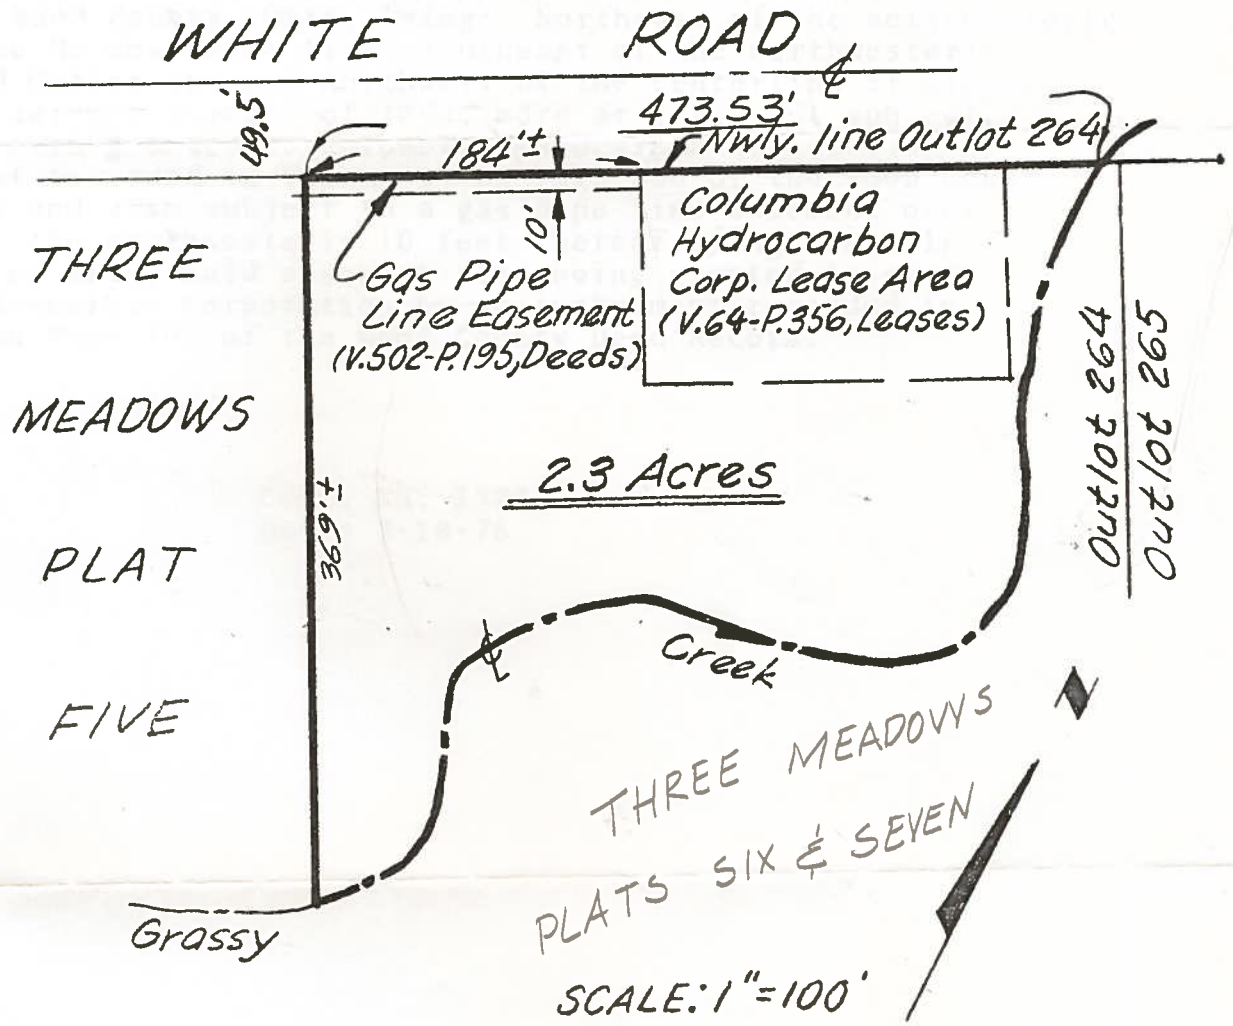 WHITE ROAD ℄
49.5'
473.53'
184'±
Nwly. line Outlot 264
10'
THREE
MEADOWS
PLAT
FIVE
Gas Pipe
Line Easement
(V.502-P.195,Deeds)
Columbia
Hydrocarbon
Corp. Lease Area
(V.64-P.356,Leases)
369'±
2.3 Acres
Outlot 264
Outlot 265
℄
Creek
Grassy
THREE MEADOWS
PLATS SIX & SEVEN
N
SCALE: 1"=100'